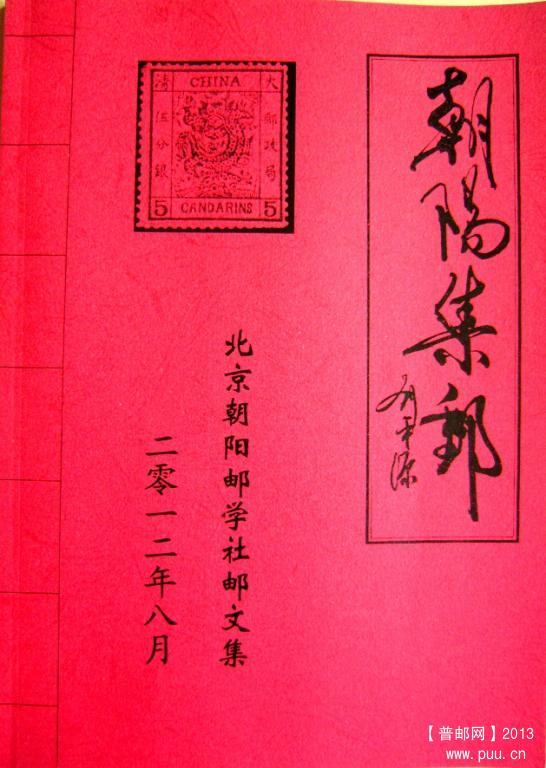 朝陽集郵
CHINA
大
清
郵政局
伍分銀
5 CANDARINS 5
北京朝阳邮学社邮文集
二零一二年八月
【普邮网】2013
www.puu.cn